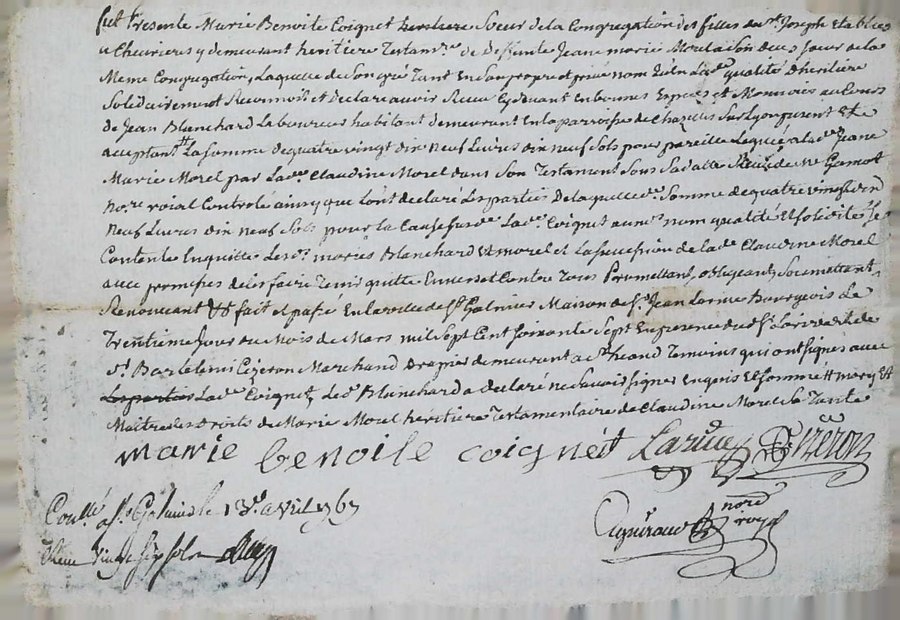 fut Presente Marie Benoite Coignet heritiere Soeur de la Congregation des filles du st Joseph Etablies
a Chevrieres y demeurant heritiere Testamre de Deffunte Jeanne marie Morel a Son deces Soeur de la
Meme Congregation, Laquelle de Son gré Tant En Son propre et privé nom qu'En Lade qualité d'heritiere
Solidairement Reconnoit et Declare avoir Reçu Cydevant En bonnes Especes et Monnoies au Cours
de Jean Blanchard Laboureur habitant demeurant En la parroisse de Chazelles Sur Lyon present Et
acceptant La Somme de quatre vingt dix Neuf Livres dix neuf Sols pour pareille Leguée a Lade Jeanne
Marie Morel par Lade Claudine Morel dans Son Testament Sous Sa datte Reçu de Me
nore roial Controlé ainsy que L'ont declaré Les parties De laquelle de Somme de quatre vingt dix
Neuf Livres dix neuf Sols pour la Cause susde Lade Coignet aux nom qualité Et Solidité Se
Contente En quitte Les de mariés Blanchard Et morel et La Succession de la de Claudine Morel
avec promesses de Les faire Tenir quitte Envers et Contre Tous Promettant, obligeant, Soumettant,
Renonçant & fait et passé En la ville de St Galmier Maison de Sr Jean Bourgeois Le
Trentieme Jour du Mois de Mars mil Sept Cent Soixante Sept En presence du Sr Larive dit de
Sr Bartelemi Cizeron Marchand Drapier demeurant a St Temoins qui ont Signés avec
Les parties Lade Coignet, Led Blanchard a declaré ne Savoir Signer Enquis Et Sommé # mary Et
Maitre des Droits de Marie Morel heritiere Testamentaire de Claudine Morel Sa Tante
marie benoite coignet Larive Cizeron
Conllé a St Galmier le 13e avril 1767
nore
Reçu vingt six sols
roy